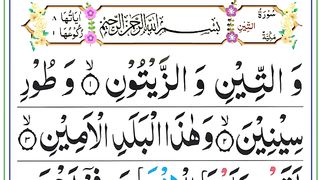 سُوْرَةُ التِّيْنِ مَكِّيَّةٌ
بِسْمِ اللّٰهِ الرَّحْمٰنِ الرَّحِيْمِ
اٰيَاتُهَا ٨ رُكُوْعُهَا ١
وَ التِّيْنِ وَ الزَّيْتُوْنِ ۙ﴿۱﴾ وَ طُوْرِ
سِيْنِيْنَ ۙ﴿۲﴾ وَ هٰذَا الْبَلَدِ الْاَمِيْنِ ۙ﴿۳﴾